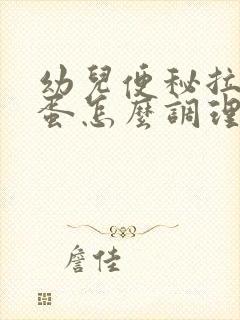 幼兒便秘拉
蛋怎麼調理
詹佳